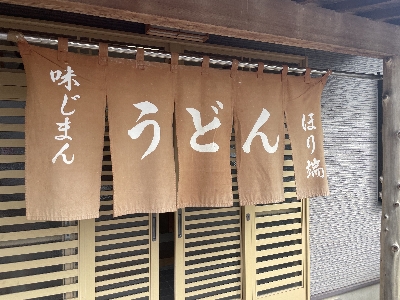 味じまん
うどん
ほり端